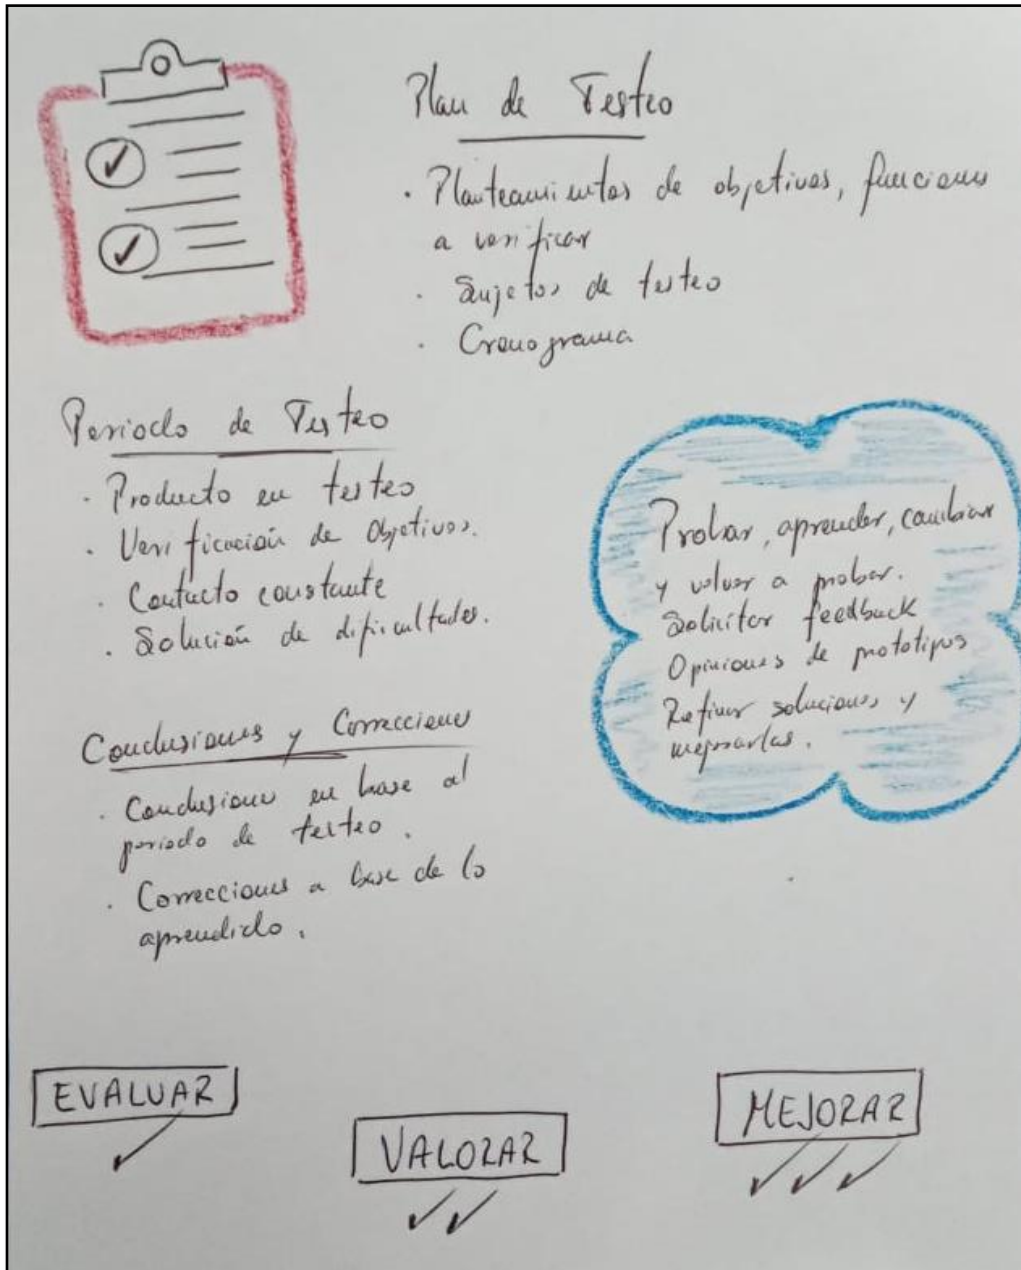 Plan de Testeo
· Planteamientos de objetivos, funciones
a verificar
· Sujetos de testeo
· Cronograma
Periodo de Testeo
· Producto en testeo
· Verificación de Objetivos.
· Contacto constante
· Solución de dificultades.
Probar, aprender, cambiar
y volver a probar.
Solicitar feedback
Opiniones de prototipos
Refinar soluciones y
mejorarlas.
Conclusiones y Correcciones
· Conclusiones en base al
periodo de testeo.
· Correcciones a base de lo
aprendido.
EVALUAR
VALORAR
MEJORAR